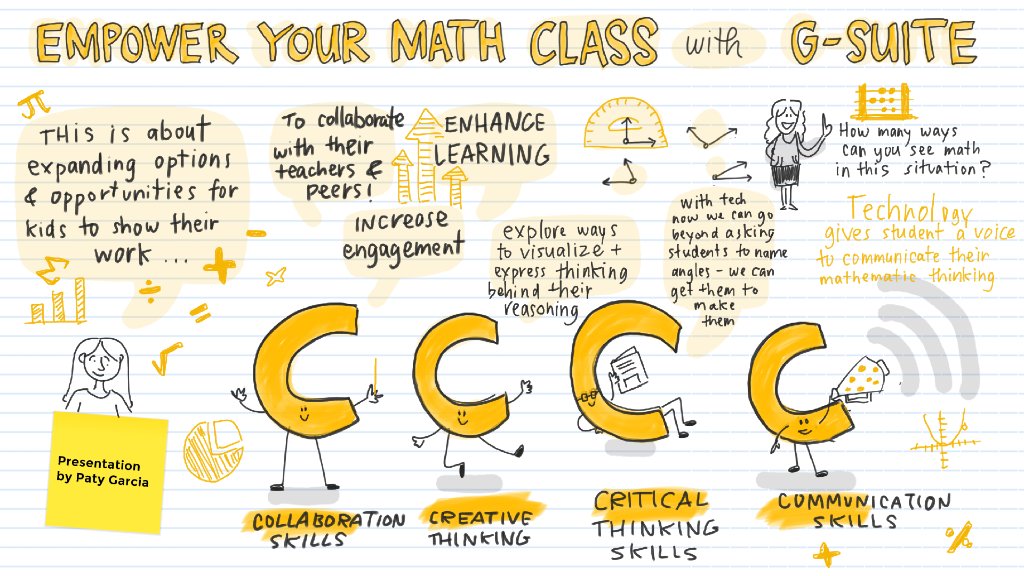 EMPOWER YOUR MATH CLASS with G-SUITE
π
THIS is about
expanding options
& opportunities for
kids to show their
work ...
To collaborate
with their
teachers &
peers!
ENHANCE
LEARNING
INCREASE
engagement
explore ways
to visualize +
express thinking
behind their
reasoning
With tech
now we can go
beyond asking
students to name
angles - we can
get them to
make
them
How many ways
can you see math
in this situation?
Technology
gives student a voice
to communicate their
mathematic thinking
Σ
-
+
÷
×
=
√
C C C C
Presentation
by Paty Garcia
COLLABORATION
SKILLS
CREATIVE
THINKING
CRITICAL
THINKING
SKILLS
COMMUNICATION
SKILLS
+
%